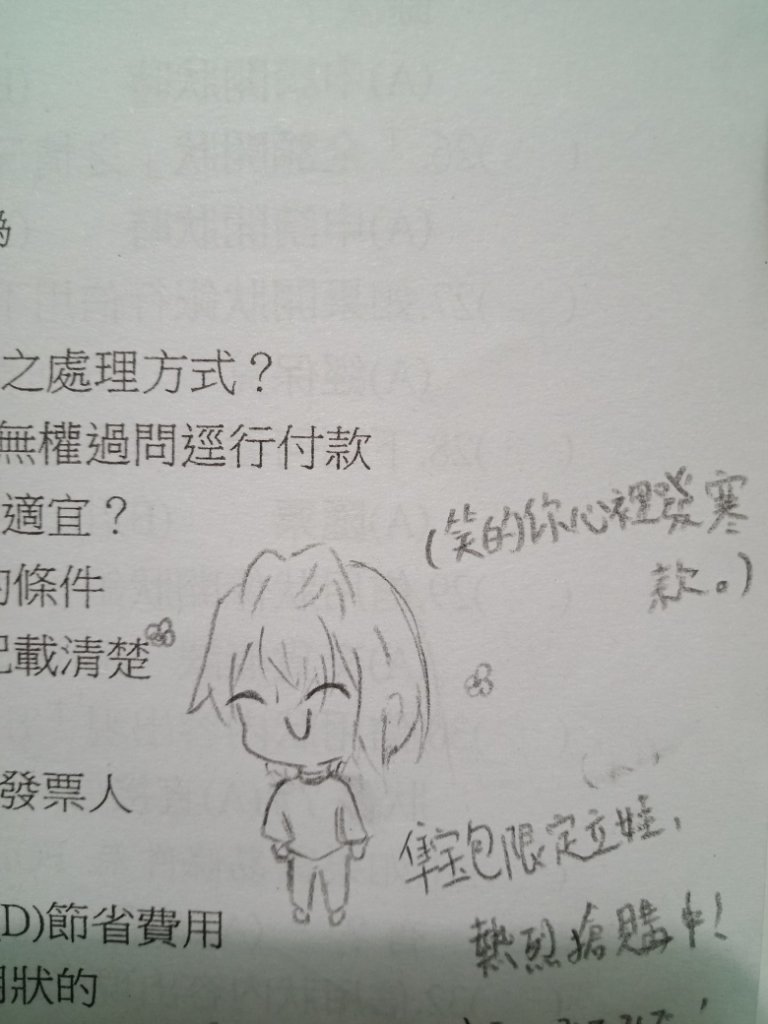 為
之處理方式？
無權過問逕行付款
適宜？
的條件
記載清楚
(笑的你心裡發寒
款。)
發票人
隼宝包限定立娃,
熱烈搶購中!
(D)節省費用
用狀的